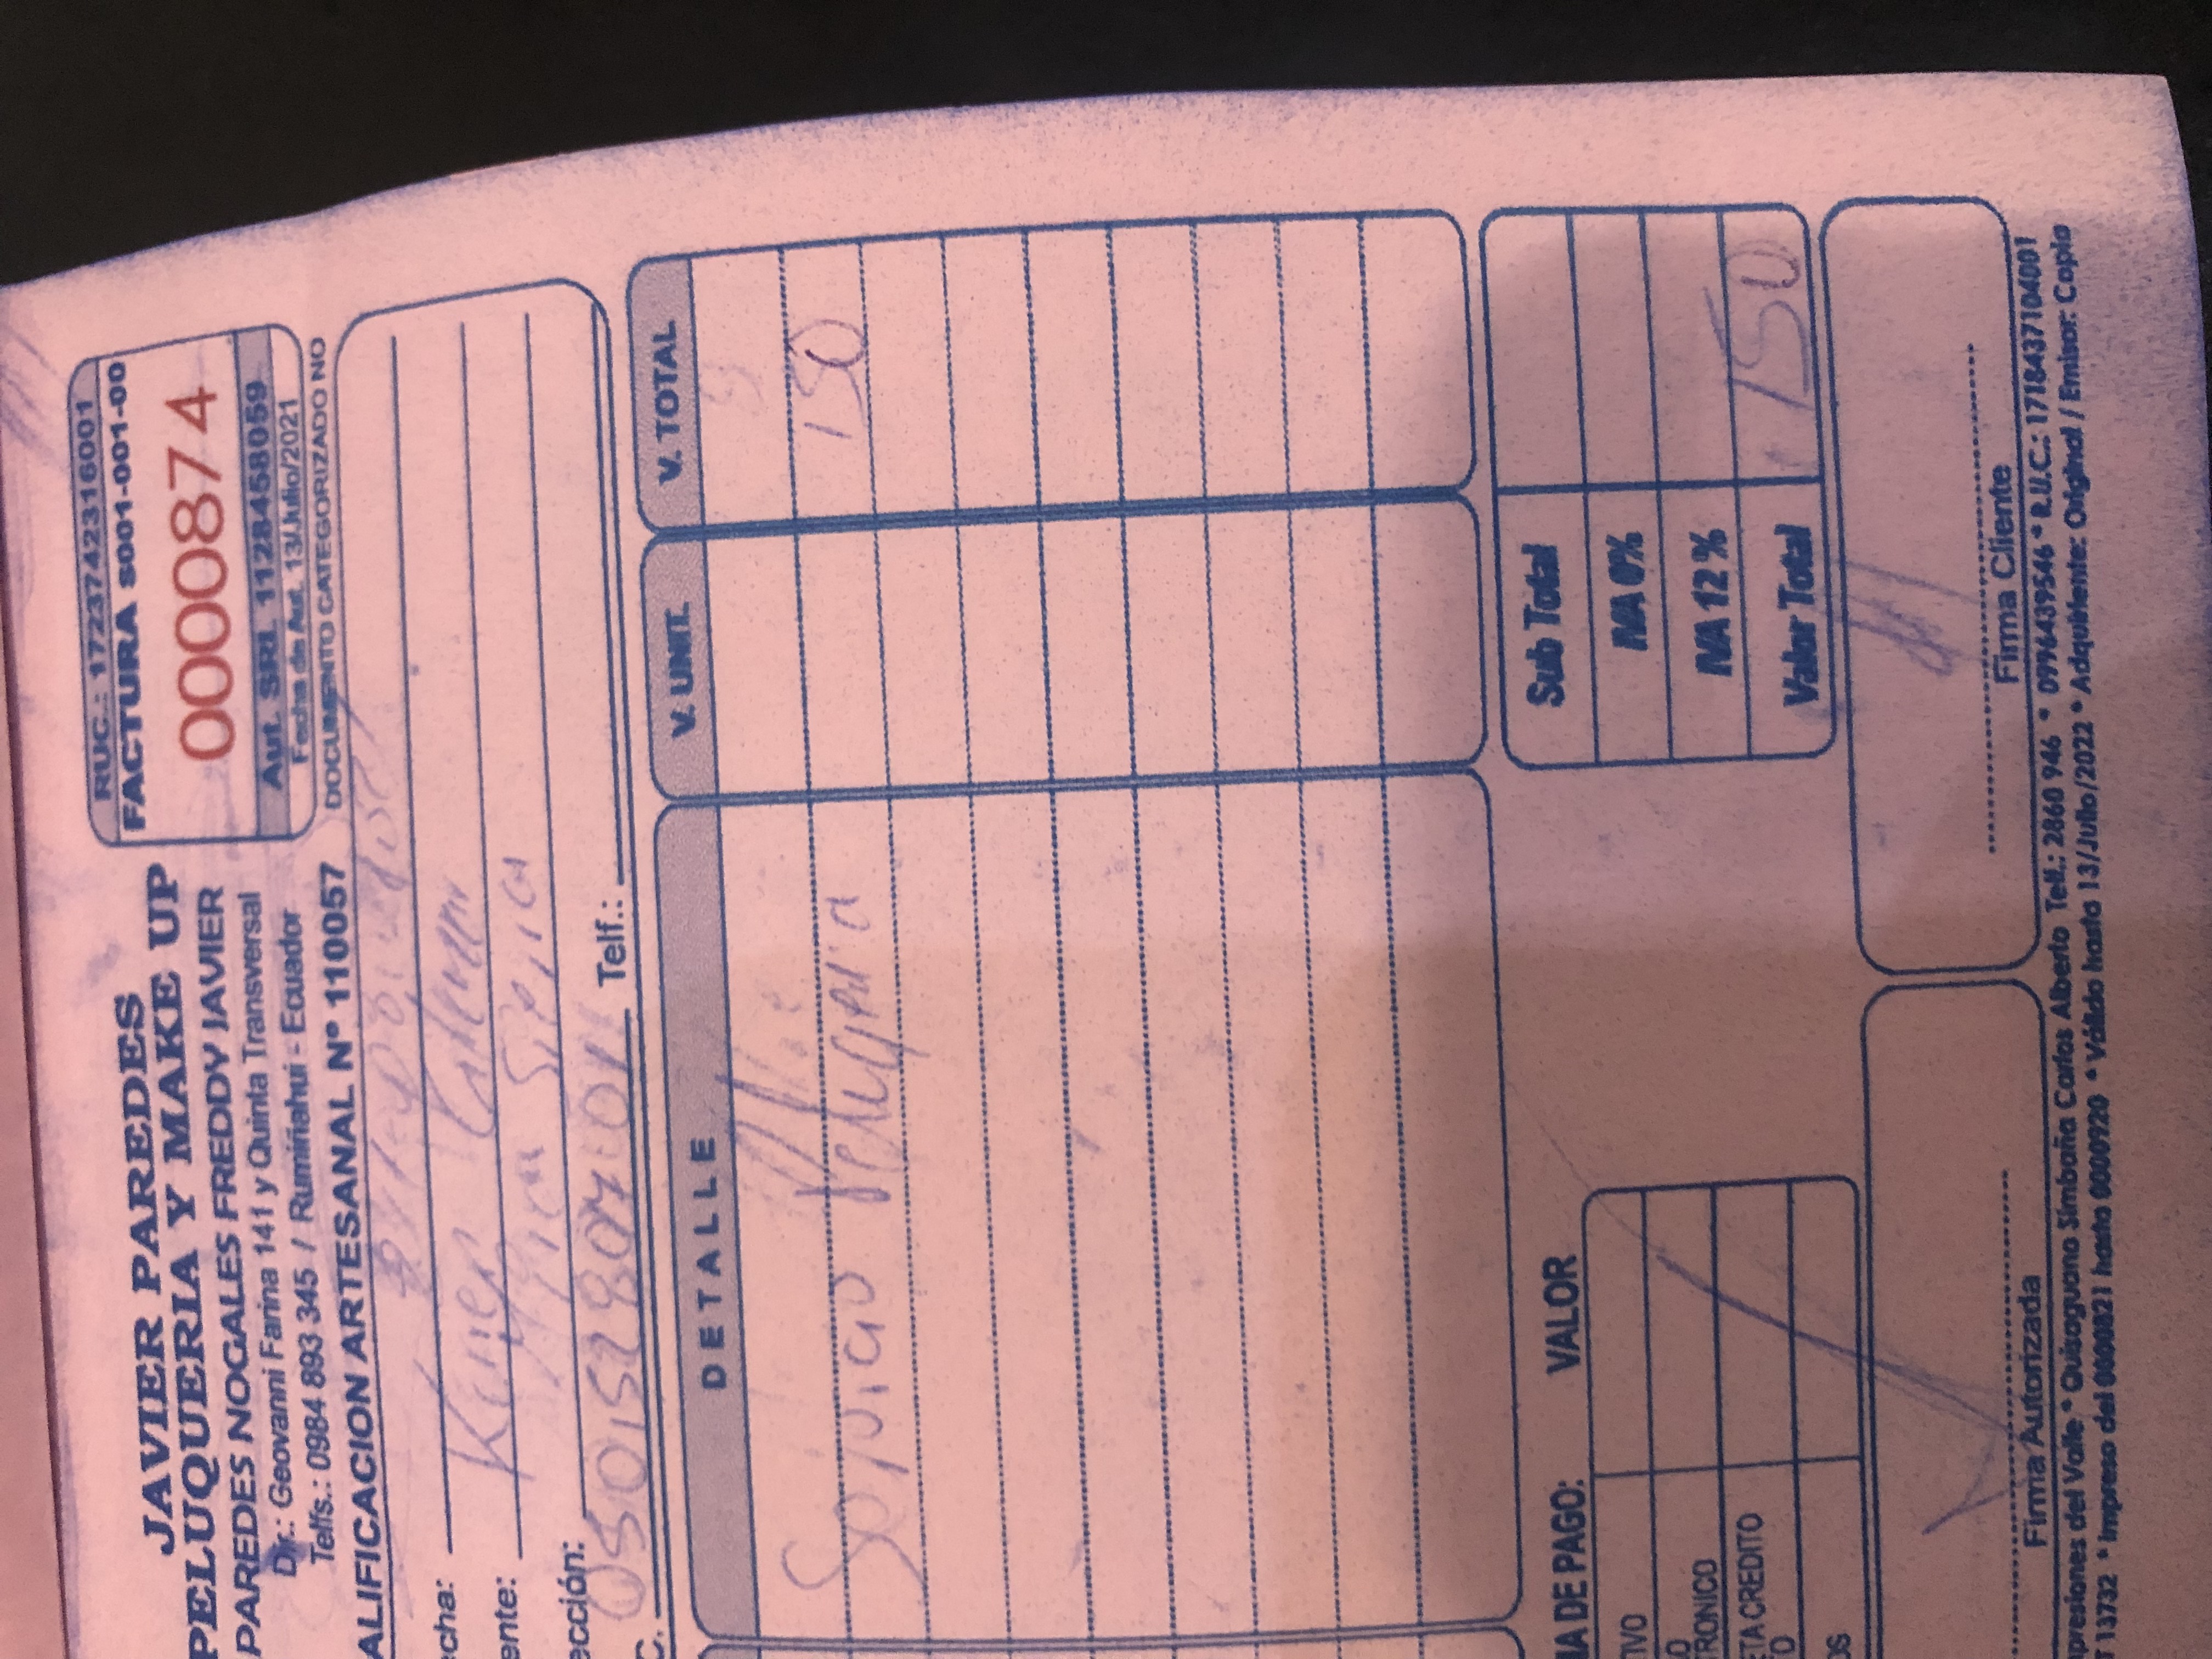 JAVIER PAREDES
PELUQUERIA Y MAKE UP
PAREDES NOGALES FREDDY JAVIER
Dir.: Geovanni Farina 141 y Quinta Transversal
Telfs.: 0984 893 345 / Rumiñahui - Ecuador
ALIFICACION ARTESANAL Nº 110057
RUC.: 1723742316001
FACTURA S001-001-00
0000874
Aut. SRI. 1128458059
Fecha de Aut. 13/Julio/2021
DOCUMENTO CATEGORIZADO NO
echa:
ente: Kleyner
ección:
C. Telf.:
DETALLE V. UNIT. V. TOTAL
Servicio Peluqueria 150
MA DE PAGO: VALOR
TIVO
O
TRONICO
ETA CREDITO
TO
OS
Sub Total
IVA 0%
IVA 12%
Valor Total 150
Firma Autorizada
Firma Cliente
presiones del Valle * Quisaguano Simbaña Carlos Alberto Telf.: 2860 946 * 0996439546 * R.U.C.: 1718437104001
T 13732 * Impreso del 0000821 hasta 0000920 * Válido hasta 13/Julio/2022 * Adquiriente: Original / Emisor: Copia